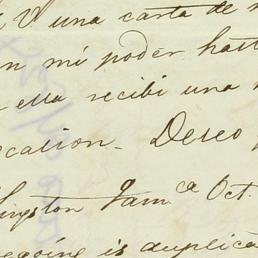 V una carta de
en mi poder hast
ella recibi una
cation. Deseo
ingston Jamca Oct.
egoing is duplica